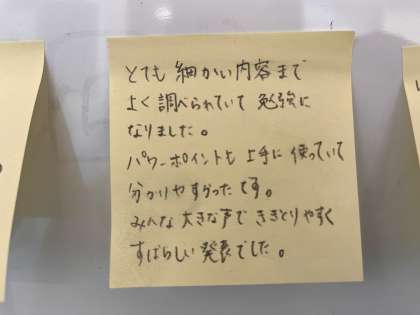 とても 細かい内容まで
よく調べられていて 勉強に
なりました。
パワーポイントも 上手に 使っていて
分かりやすかったです。
みんな 大きな声で ききとりやすく
すばらしい 発表でした。